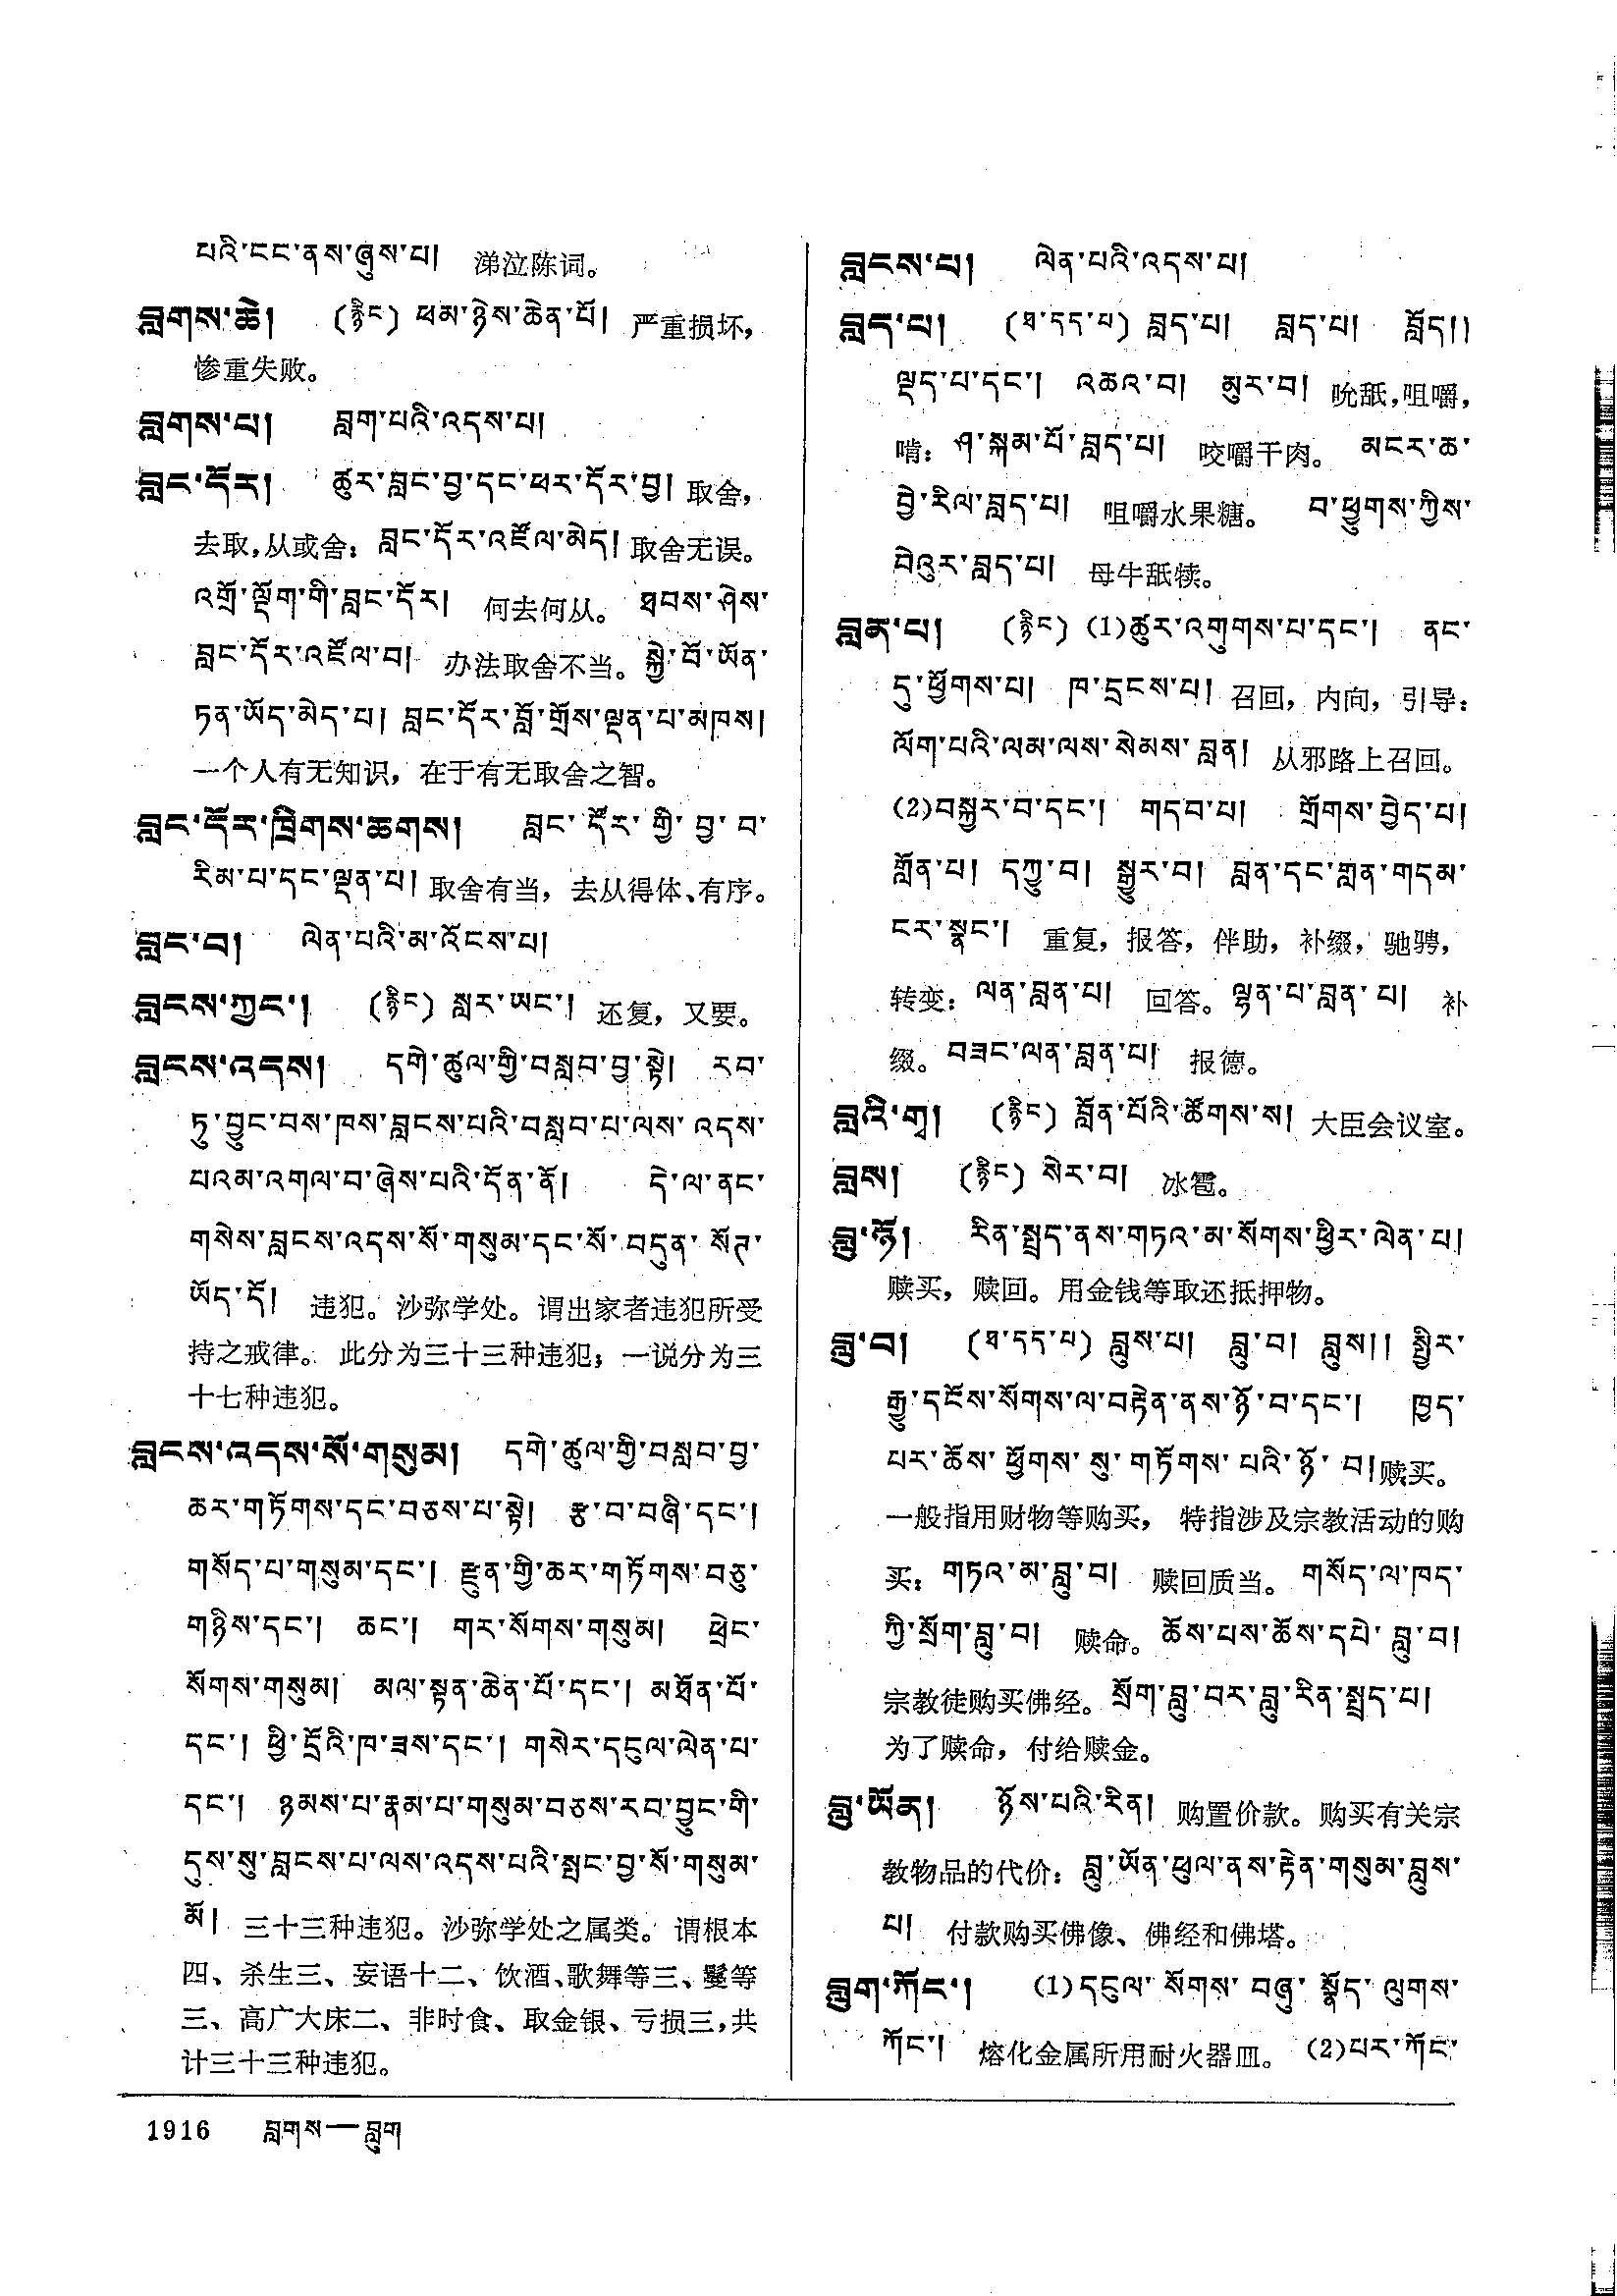 པའི་ངང་ནས་ཞུས་པ། 涕泣陈词。
བླགས་ཆེ། (རྙིང) ཕམ་ཉེས་ཆེན་པོ། 严重损坏，
惨重失败。
བླགས་པ། བླག་པའི་འདས་པ།
བླང་དོར། ཚུར་བླང་བྱ་དང་ཕར་དོར་བྱ། 取舍，
去取，从或舍：བླང་དོར་འཛོལ་མེད། 取舍无误。
འགྲོ་ལྡོག་གི་བླང་དོར། 何去何从。 ཐབས་ཤེས་
བླང་དོར་འཛོལ་བ། 办法取舍不当。སྐྱེ་བོ་ཡོན་
ཏན་ཡོད་མེད་པ། བླང་དོར་བློ་གྲོས་ལྡན་པ་མཁས།
一个人有无知识，在于有无取舍之智。
བླང་དོར་ཁྲིགས་ཆགས། བླང་དོར་གྱི་བྱ་བ་
རིམ་པ་དང་ལྡན་པ། 取舍有当，去从得体、有序。
བླང་བ། ལེན་པའི་མ་འོངས་པ།
བླངས་ཀྱང་། (རྙིང) སླར་ཡང་། 还复，又要。
བླངས་འདས། དགེ་ཚུལ་གྱི་བསླབ་བྱ་སྟེ། རབ་
ཏུ་བྱུང་བས་ཁས་བླངས་པའི་བསླབ་པ་ལས་འདས་
པའམ་འགལ་བ་ཞེས་པའི་དོན་ནོ། དེ་ལ་ནང་
གསེས་བླངས་འདས་སོ་གསུམ་དང་སོ་བདུན་སོཊ་
ཡོད་དོ། 违犯。沙弥学处。谓出家者违犯所受
持之戒律。此分为三十三种违犯；一说分为三
十七种违犯。
བླངས་འདས་སོ་གསུམ། དགེ་ཚུལ་གྱི་བསླབ་བྱ་
ཆར་གཏོགས་དང་བཅས་པ་སྟེ། རྩ་བ་བཞི་དང་།
གསོད་པ་གསུམ་དང་། རྫུན་གྱི་ཆར་གཏོགས་བཅུ་
གཉིས་དང་། ཆང་། གར་སོགས་གསུམ། ཕྲེང་
སོགས་གསུམ། མལ་སྟན་ཆེན་པོ་དང་། མཐོན་པོ་
དང་། ཕྱི་དྲོའི་ཁ་ཟས་དང་། གསེར་དངུལ་ལེན་པ་
དང་། ཉམས་པ་རྣམ་པ་གསུམ་བཅས་རབ་བྱུང་གི་
དུས་སུ་བླངས་པ་ལས་འདས་པའི་སྤང་བྱ་སོ་གསུམ་
མོ། 三十三种违犯。沙弥学处之属类。谓根本
四、杀生三、妄语十二、饮酒、歌舞等三、鬘等
三、高广大床二、非时食、取金银、亏损三，共
计三十三种违犯。
བླངས་པ། ལེན་པའི་འདས་པ།
བླད་པ། (ཐ་དད་པ) བླད་པ། བླད་པ། བློད།།
ལྡད་པ་དང་། འཆའ་བ། མུར་བ། 吮舐，咀嚼，
啃：ཤ་སྐམ་པོ་བླད་པ། 咬嚼干肉。 མངར་ཆ་
བྱེ་རིལ་བླད་པ། 咀嚼水果糖。 བ་ཕྱུགས་ཀྱིས་
བེའུར་བླད་པ། 母牛舐犊。
བླན་པ། (རྙིང) (1)ཚུར་འགུགས་པ་དང་། ནང་
དུ་ཕྱོགས་པ། ཁ་དྲངས་པ། 召回，内向，引导：
ལོག་པའི་ལམ་ལས་སེམས་བླན། 从邪路上召回。
(2)བསྐྱར་བ་དང་། གདབ་པ། གྲོགས་བྱེད་པ།
གློན་པ། དཀྱུ་བ། སྒྱུར་བ། བླན་དང་གླན་གདམ་
ངར་སྣང་། 重复，报答，伴助，补缀，驰骋，
转变：ལན་བླན་པ། 回答。ལྷན་པ་བླན་པ། 补
缀。བཟང་ལན་བླན་པ། 报德。
བླའི་གྭ། (རྙིང) བློན་པོའི་ཚོགས་ས། 大臣会议室。
བླས། (རྙིང) སེར་བ། 冰雹。
བླུ་ཉོ། རིན་སྤྲད་ནས་གཏའ་མ་སོགས་ཕྱིར་ལེན་པ།
赎买，赎回。用金钱等取还抵押物。
བླུ་བ། (ཐ་དད་པ) བླུས་པ། བླུ་བ། བླུས།། སྤྱིར་
རྒྱུ་དངོས་སོགས་ལ་བརྟེན་ནས་ཉོ་བ་དང་། ཁྱད་
པར་ཆོས་ཕྱོགས་སུ་གཏོགས་པའི་ཉོ་བ། 赎买。
一般指用财物等购买，特指涉及宗教活动的购
买：གཏའ་མ་བླུ་བ། 赎回质当。 གསོད་ལ་ཁད་
ཀྱི་སྲོག་བླུ་བ། 赎命。ཆོས་པས་ཆོས་དཔེ་བླུ་བ།
宗教徒购买佛经。སྲོག་བླུ་བར་བླུ་རིན་སྤྲད་པ།
为了赎命，付给赎金。
བླུ་ཡོན། ཉོས་པའི་རིན། 购置价款。购买有关宗
教物品的代价：བླུ་ཡོན་ཕུལ་ནས་རྟེན་གསུམ་བླུས་
པ། 付款购买佛像、佛经和佛塔。
བླུག་ཀོང་། (1)དངུལ་སོགས་བཞུ་སྣོད་ལུགས་
ཀོང་། 熔化金属所用耐火器皿。 (2)པར་ཀོང་
1916 བླགས—བླུག